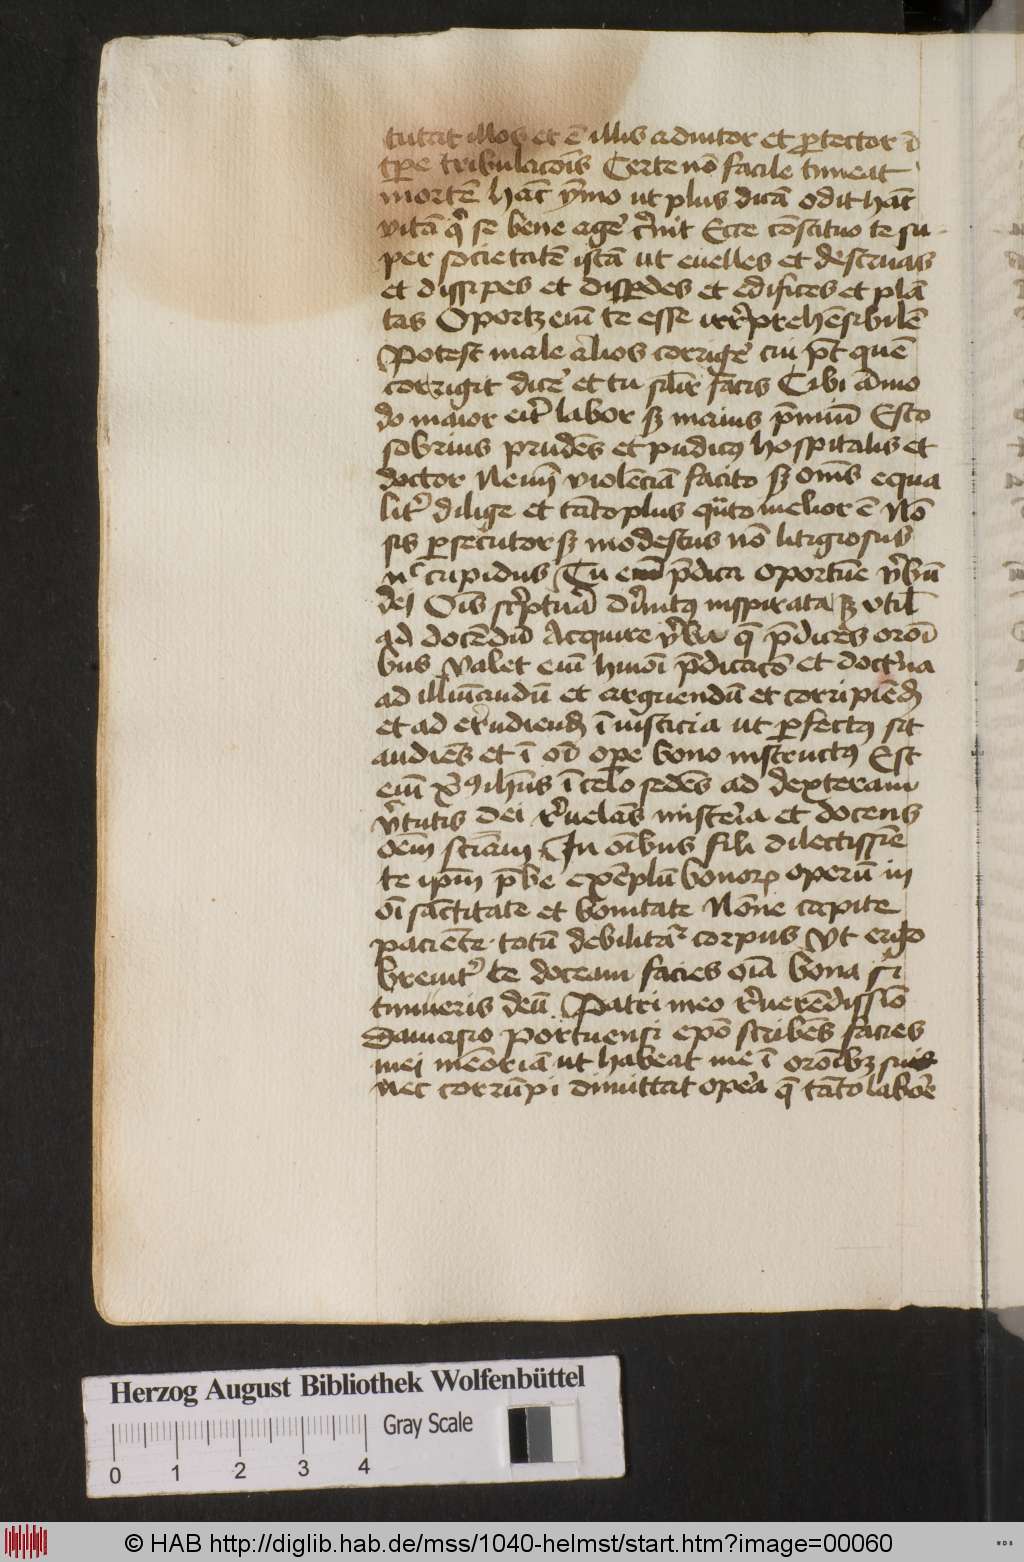 tutat illos et ē illis adiutor et ꝓtector ī
tꝑe tribulacōis Certe nō facile timeat
mortē hāc ymo ut plus dicā odit hāc
vitā qͥ se bene age͛ cͥnit Ecce cōstituo te su
per societatē istā ut euelles et destruas
et dissipes et disꝑdes et edifices et plā
tas Oportꝫ eīm te esse irrͤprehēsibilē
Potest male alios corrige͛ cui pt̄ quē
corrigit dice͛ et tu silīr facis Tibi ādmo
do maior eīt labor sꝫ maius p̄miū Esto
sobrius prudēs et pudicꝰ hospitalis et
doctor Nemī violēciā facito sꝫ om̄s equa
lit͛ dilige et tātoplus qͣto melior ē Nō
sis ꝑsecutor sꝫ modestus nō litigiosus
nͨ cupidus Tu p̄dica oportūe v͛bū
dei Oīs scͥptura diͥnitꝰ inspirata ꝫ vtil̄
ad docēdū Acquire v͛ba q̄ p̄dices oīm
bus Valet eīm hmōi p̄dicacō et doctͥna
ad illuīandū et arguendū et corripiēdͫ
et ad erudiendͫ ī iusticia ut ꝑfectꝰ sit
audiēs et ī oī oꝑe bono instructꝰ Est
eīm xp̄ꝰ ihūs ī celo sedēs ad dexteram
v͛tutis dei rͤuelās mistͤia et docens
oēm sciām In oībus fili dilectissīe
te ipm̄ p̄be exēplū bonoꝝ operū in
oī sāctitate et bonitate Nōne capite
paciēte totū debilitāͬ corpus Vt ergo
breuit͛ te doceam facies oīa bona si
timueris deū Patri meo rͤuerēdissīo
Damasio portuensi epō scribēs facies
mei mēoriā ut habeat me ī orōibꝫ suis
nec corrūpi dimittat opͤa q̄ tāto labōe
Herzog August Bibliothek Wolfenbüttel
Gray Scale
0 1 2 3 4
© HAB http://diglib.hab.de/mss/1040-helmst/start.htm?image=00060